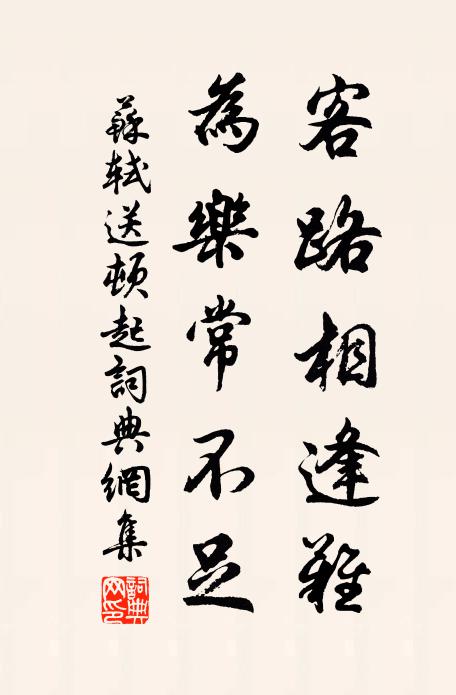 客路相逢難
為樂常不足
蘇軾送頓起詞典網集
詞典網印